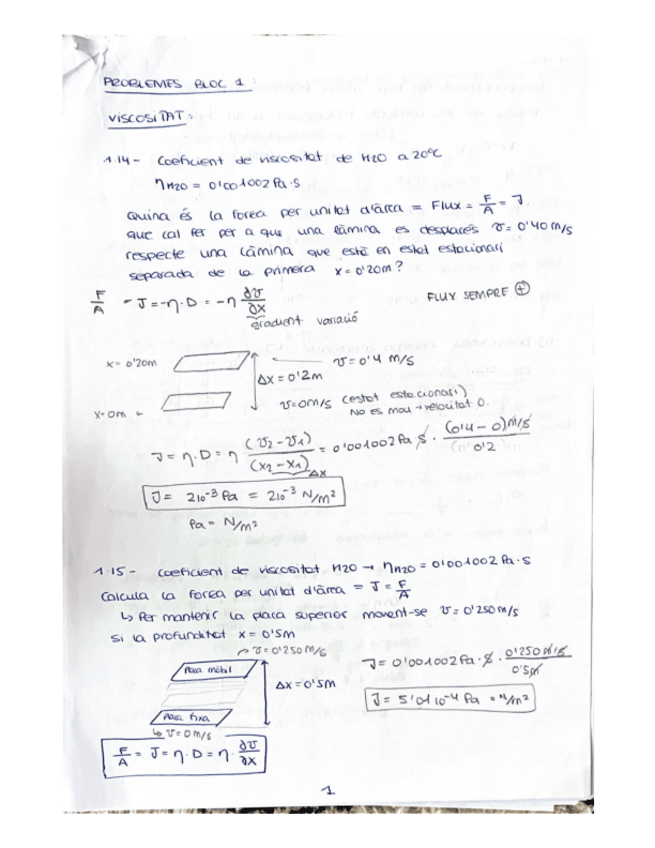 PROBLEMES BLOC 1:
VISCOSITAT:
1.14- Coeficient de viscositat de H2O a 20ºC
ηH2O = 0'001002 Pa·s
Quina és la força per unitat d'àrea = Flux = F/A = J
que cal fer per a que una làmina es desplacés v = 0'40 m/s
respecte una làmina que està en estat estacionari
separada de la primera x = 0'20m?
F/A - J = -η·D = -η ∂v/∂x FLUX SEMPRE ⊕
gradient variació
x = 0'20m v = 0'4 m/s
Δx = 0'2m
x = 0m ← v = 0m/s (estat estacionari)
No es mou → velocitat 0.
J = η·D = η (v2 - v1)/(x2 - x1) = 0'001002 Pa·s · (0'4 - 0) m/s / 0'2
Δx
J = 2·10⁻³ Pa = 2·10⁻³ N/m²
Pa = N/m²
1.15- coeficient de viscositat H2O → ηH2O = 0'001002 Pa·s
Calcula la força per unitat d'àrea = J = F/A
↳ Per mantenir la placa superior movent-se v = 0'250 m/s
si la profunditat x = 0'5m
→ v = 0'250 m/s
Placa mòbil
J = 0'001002 Pa·s · 0'250 m/s / 0'5m
Δx = 0'5m
J = 5'01·10⁻⁴ Pa o N/m²
Placa fixa
↳ v = 0 m/s
F/A = J = η·D = η · ∂v/∂x
1